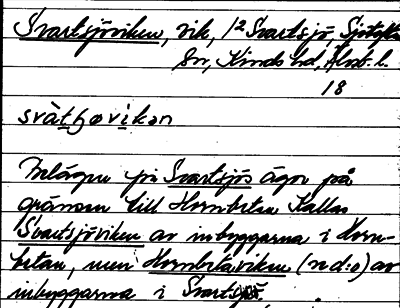 Svartsjöviken, vik, 1/2 Svartsjö,
sn, Kinds hd, Älvsb. l.
18
svàtʃøvikən
Belägen på Svartsjös ägor på
gränsen till Hornbetan Kallas
Svartsjöviken av inbyggarna i Horn-
betan, men Hornbetaviken (n d:o) av
inbyggarna i Svartsjö.